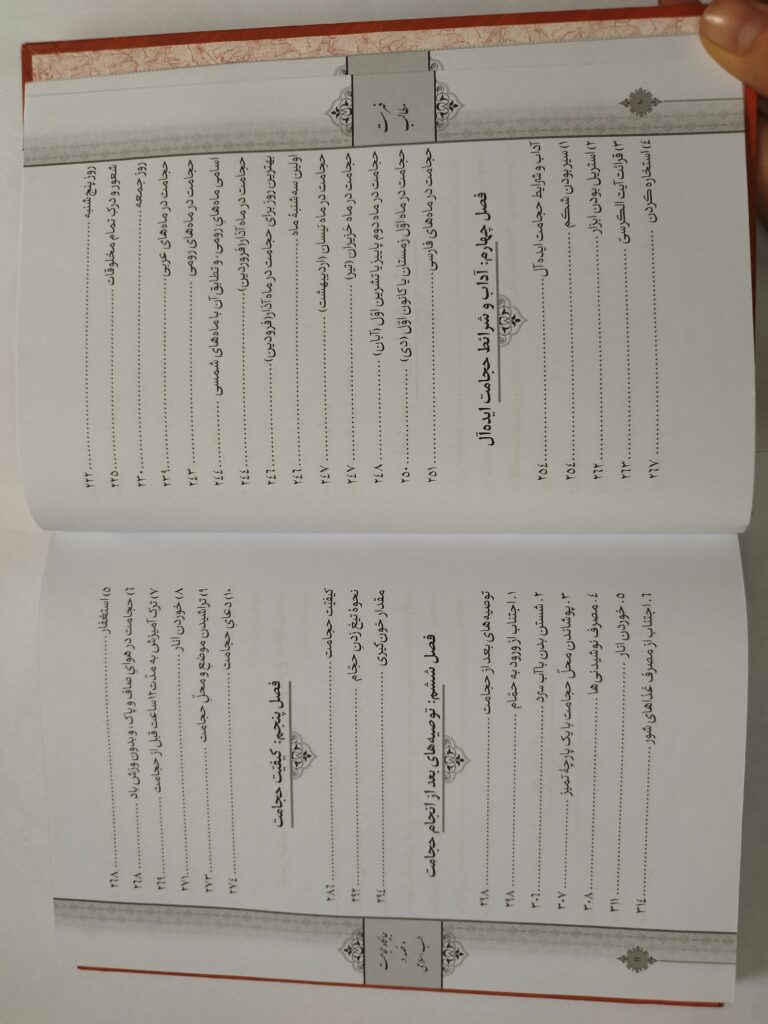 فهرست
مطالب
روز پنج‌شنبه ........ ۲۲۲
شعور و درکِ تمام مخلوقات ........ ۲۲۵
روز جمعه ........ ۲۳۰
حجامت در ماه‌های عربی ........ ۲۳۹
حجامت در ماه‌های رومی ........ ۲۴۳
اسامی ماه‌های رومی، و تطابق آن با ماه‌های شمسی ........ ۲۴۴
حجامت در ماه آذار (فروردین) ........ ۲۴۴
بهترین روز برای حجامت در ماه آذار (فرودین) ........ ۲۴۶
اولین سه‌شنبۀ ماه ........ ۲۴۶
حجامت در ماه نیسان (اردیبهشت) ........ ۲۴۷
حجامت در ماه حَزیران (تیر) ........ ۲۴۷
حجامت در ماه دوم پاییز یا تشرین اوّل (آبان) ........ ۲۴۸
حجامت در ماه اوّل زمستان یا کانون اوّل (دی) ........ ۲۵۰
حجامت در ماه‌های فارسی ........ ۲۵۱
فصل چهارم: آداب و شرائط حجامت ایده‌آل
آداب و شرایط حجامت ایده‌آل ........ ۲۵۴
۱) سیر بودن شکم ........ ۲۵۴
۲) استریل بودن ابزار ........ ۲۶۲
۳) قرائت آیت الکرسیّ ........ ۲۶۳
۴) استخاره کردن ........ ۲۶۷
۱۰
۵) استغفار ........ ۲۶۸
۶) حجامت در هوایِ صاف و پاک، و بدون وزش باد ........ ۲۶۸
۷) ترک آمیزش به مدّت ۱۲ ساعت قبل از حجامت ........ ۲۶۹
۸) خوردن انار ........ ۲۷۱
۹) تراشیدن موضع و محلّ حجامت ........ ۲۷۳
۱۰) دعای حجامت ........ ۲۷۴
فصل پنجم: کیفیّت حجامت
کیفیّت حجامت ........ ۲۸۶
نحوۀ تیغ زدن حجّام ........ ۲۹۲
مقدار خون‌گیری ........ ۲۹۴
فصل ششم: توصیه‌های بعد از انجام حجامت
توصیه‌های بعد از حجامت ........ ۲۹۸
۱. اجتناب از ورود به حمّام ........ ۲۹۸
۲. شستن بدن با آب سرد ........ ۳۰۶
۳. پوشاندن محلّ حجامت با یک پارچۀ تمیز ........ ۳۰۷
۴. مصرف نوشیدنی‌ها ........ ۳۰۸
۵. خوردن انار ........ ۳۱۱
۶. اجتناب از مصرف غذاهای شور ........ ۳۱۴
۱۱